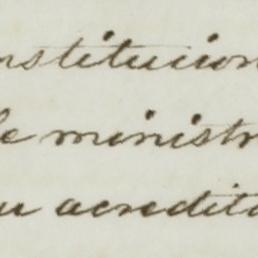 nstitucion
le ministr
u acredita